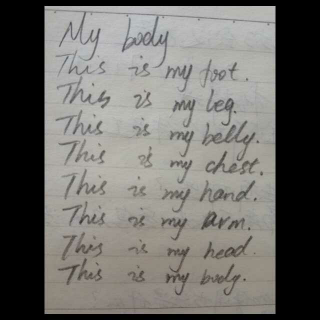 My body
This is my foot.
This is my leg.
This is my belly.
This is my chest.
This is my hand.
This is my arm.
This is my head.
This is my body.